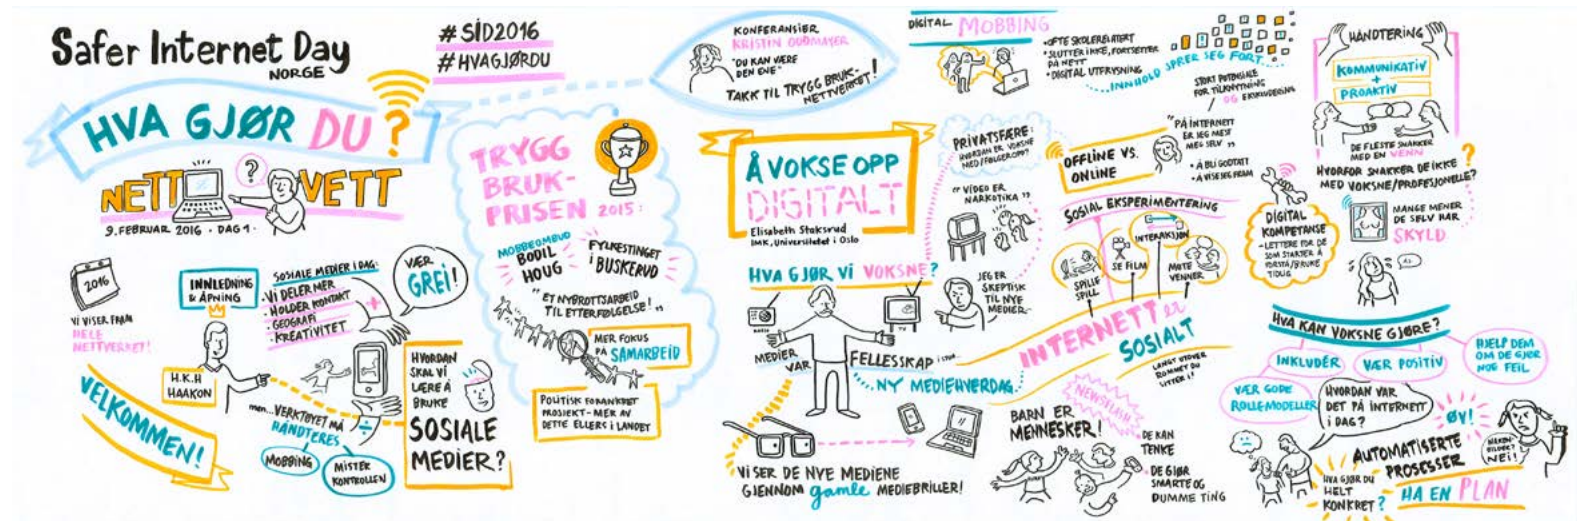 Safer Internet Day
NORGE
#SID2016
#HVAGJØRDU
HVA GJØR DU?
NETTVETT
9. FEBRUAR 2016 · DAG 1 ·
2016
VI VISER FRAM
HELE
NETTVERKET!
VELKOMMEN!
INNLEDNING
& ÅPNING
H.K.H
HAAKON
SOSIALE MEDIER I DAG:
· VI DELER MER
· HOLDER KONTAKT
· GEOGRAFI
· KREATIVITET
+
VÆR
GREI!
men... VERKTØYET MÅ
HÅNDTERES
÷
MOBBING
MISTER
KONTROLLEN
HVORDAN
SKAL VI
LÆRE Å
BRUKE
SOSIALE
MEDIER?
TRYGG
BRUK-
PRISEN 2015:
MOBBEOMBUD
BODIL
HOUG
FYLKESTINGET
i BUSKERUD
"ET NYBROTTSARBEID
TIL ETTERFØLGELSE!"
MER FOKUS
PÅ SAMARBEID
POLITISK FORANKRET
PROSJEKT - MER AV
DETTE ELLERS I LANDET
KONFERANSIER
KRISTIN OUDMAYER
"DU KAN VÆRE
DEN ENE"
TAKK TIL TRYGG BRUK-
NETTVERKET!
Å VOKSE OPP
DIGITALT
Elisabeth Staksrud
IMK, Universitetet i Oslo
HVA GJØR VI VOKSNE?
RADIO
TV
MEDIER
VAR
FELLESSKAP i stua...
... NY MEDIEHVERDAG.
VI SER DE NYE MEDIENE
GJENNOM gamle MEDIEBRILLER!
DIGITAL MOBBING
· OFTE SKOLERELATERT
· SLUTTER IKKE, FORTSETTER
PÅ NETT
· DIGITAL UTFRYSNING
... INNHOLD SPRER SEG FORT...
STORT POTENSIALE
FOR TILKNYTNING
OG EKSKLUDERING
PRIVATSFÆRE:
HVORDAN ER VOKSNE
MED/FØLGER OPP?
"VIDEO ER
NARKOTIKA"
JEG ER
SKEPTISK
TIL NYE
MEDIER
OFFLINE VS.
ONLINE
"PÅ INTERNETT
ER JEG MEST
MEG SELV"
· Å BLI GODTATT
· Å VISE SEG FRAM
SOSIAL EKSPERIMENTERING
INTERAKSJON
SPILLE
SPILL
SE FILM
MØTE
VENNER
INTERNETT er
SOSIALT
LANGT UTOVER
ROMMET DU
SITTER I!
NEWSFLASH
BARN ER
MENNESKER!
· DE KAN
TENKE
· DE GJØR
SMARTE OG
DUMME TING
DIGITAL
KOMPETANSE
- LETTERE FOR DE
SOM STARTER Å
FORSTÅ/BRUKE
TIDLIG
HÅNDTERING
KOMMUNIKATIV
+
PROAKTIV
DE FLESTE SNAKKER
MED EN VENN
HVORFOR SNAKKER DE IKKE
MED VOKSNE/PROFESJONELLE?
MANGE MENER
DE SELV HAR
SKYLD
HVA KAN VOKSNE GJØRE?
INKLUDÉR
VÆR POSITIV
HJELP DEM
OM DE GJØR
NOE FEIL
VÆR GODE
ROLLEMODELLER
HVORDAN VAR
DET PÅ INTERNETT
I DAG?
ØY!
AUTOMATISERTE
PROSESSER
NAKEN-
BILDER?
NEI!
HVA GJØR DU
HELT
KONKRET?
HA EN PLAN